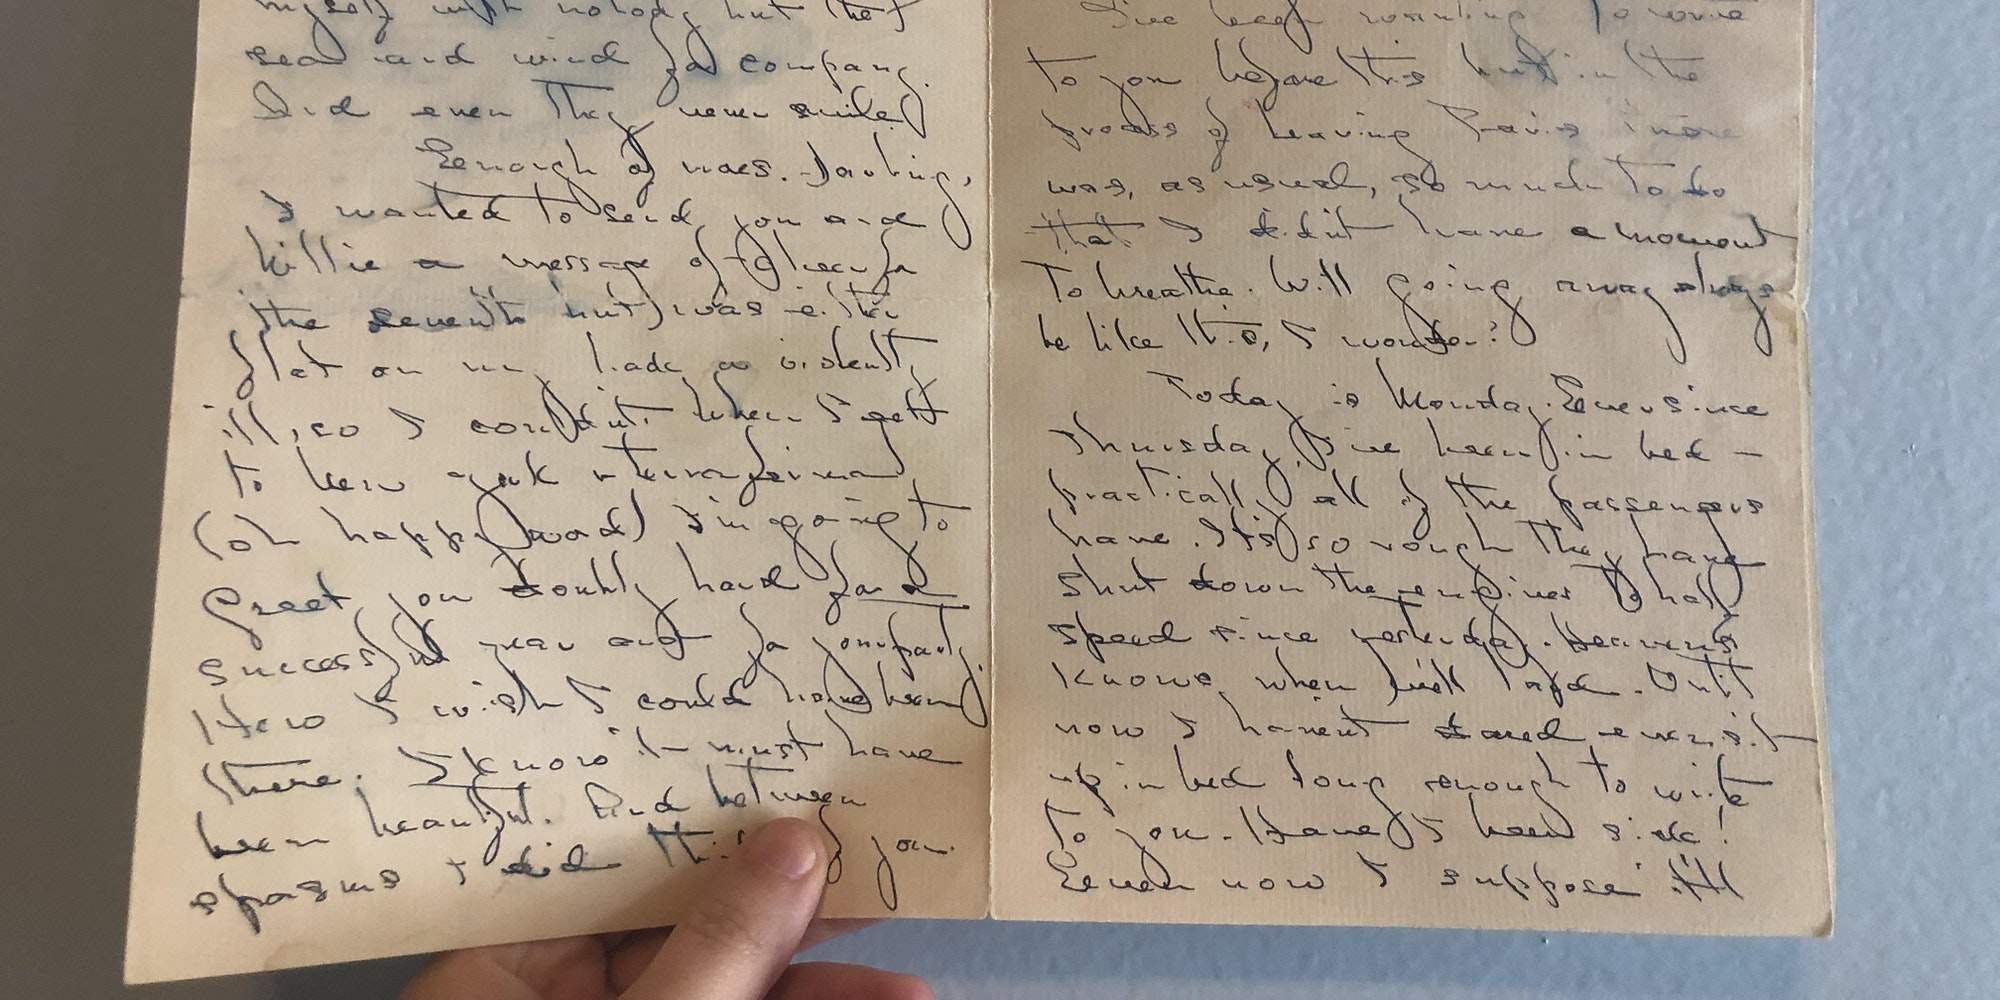 myself with nobody but the
sea and wind for company.
And even they never smiled
Eenough of woes. Darling,
I wanted to send you and
Killie a message of cheer for
the seventh but I was either
flat on my back or violently
ill, so I couldn't. When I get
to New York
(oh happy word) I'm going to
greet you doubly hard for a
successful year and for your party.
How I wish I could have been
there. I know it must have
been beautiful. And between
spasms I did think of you.
I've been wanting to write
to you before this but in the
process of leaving Paris there
was, as usual, so much to do
that I didn't have a moment
to breathe. Will going away always
be like this, I wonder?
Today is Monday. Ever since
Thursday I've been in bed —
practically all of the passengers
have. It's so rough they have
shut down the engines to half
speed since yesterday. Heavens
knows when we'll land. Until
now I haven't dared even sit
up in bed long enough to write
to you. Have I been sick!
Eeven now I suppose I'll